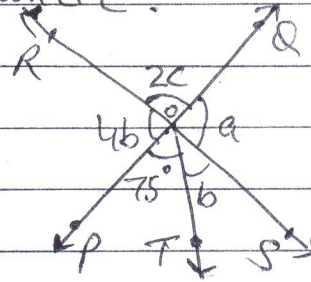 R
Q
2c
O
4b
a
75°
b
P
T
S